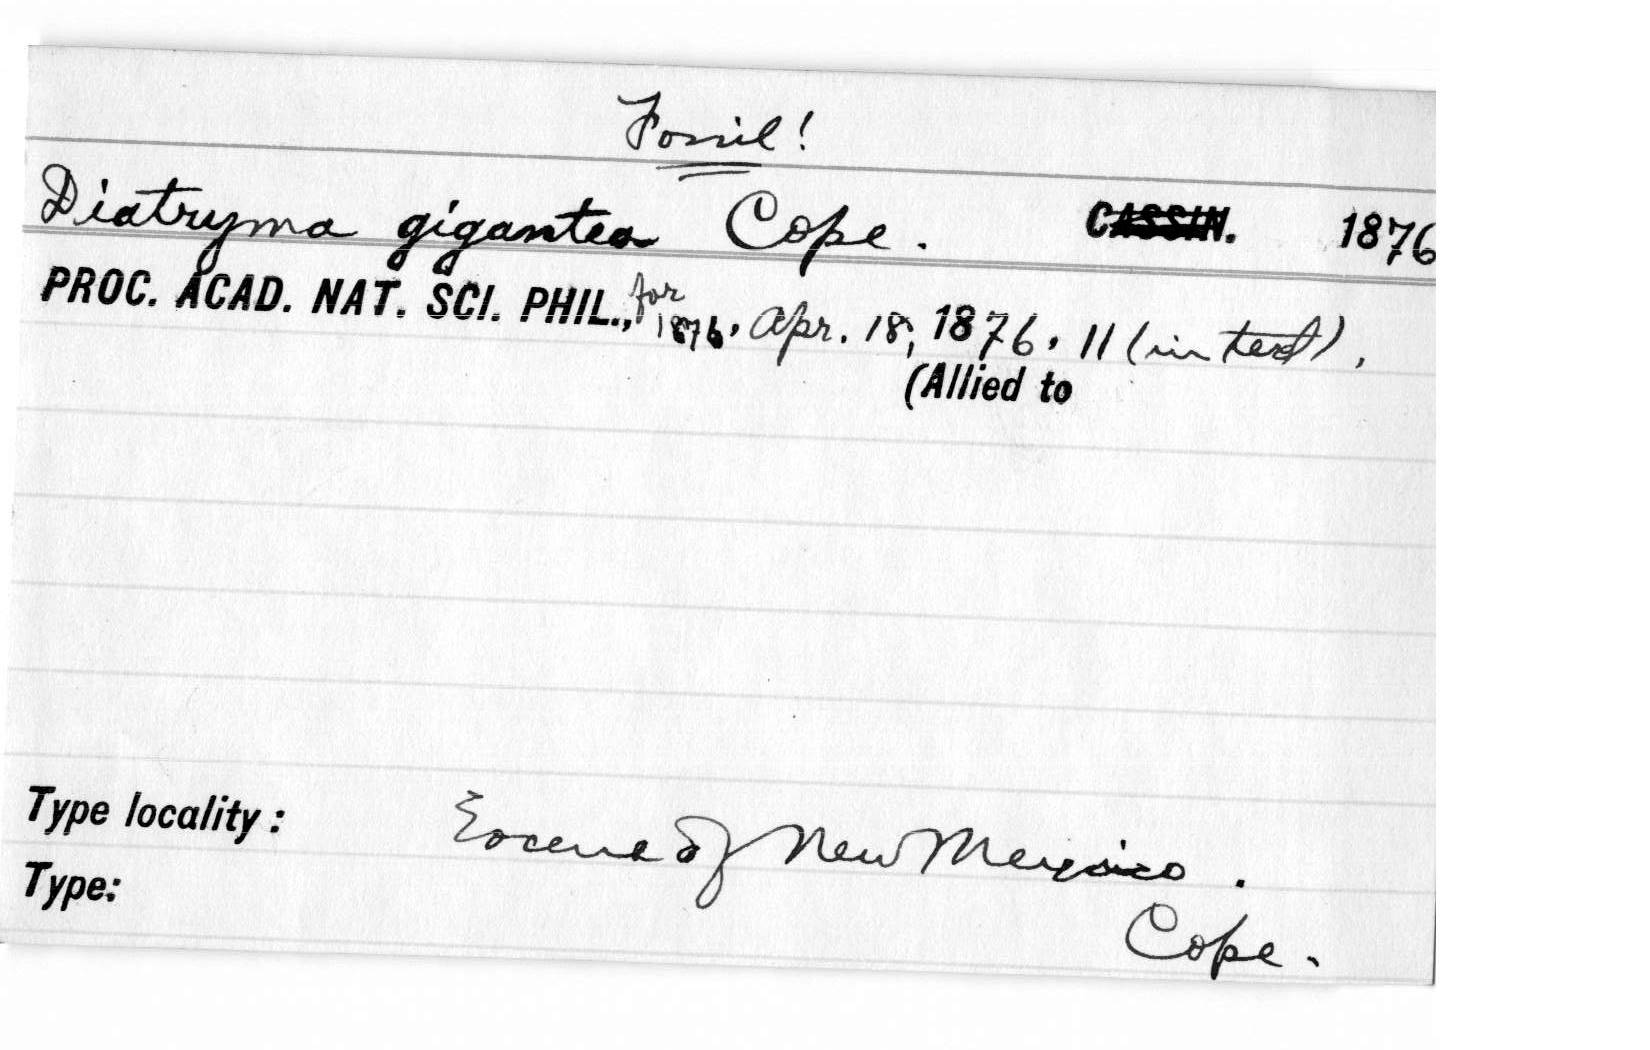 Fossil!
Diatryma gigantea Cope. CASSIN. 1876
PROC. ACAD. NAT. SCI. PHIL., for 1876, Apr. 18, 1876, 11 (in text),
(Allied to
Type locality: Eocene of New Mexico.
Type:
Cope.